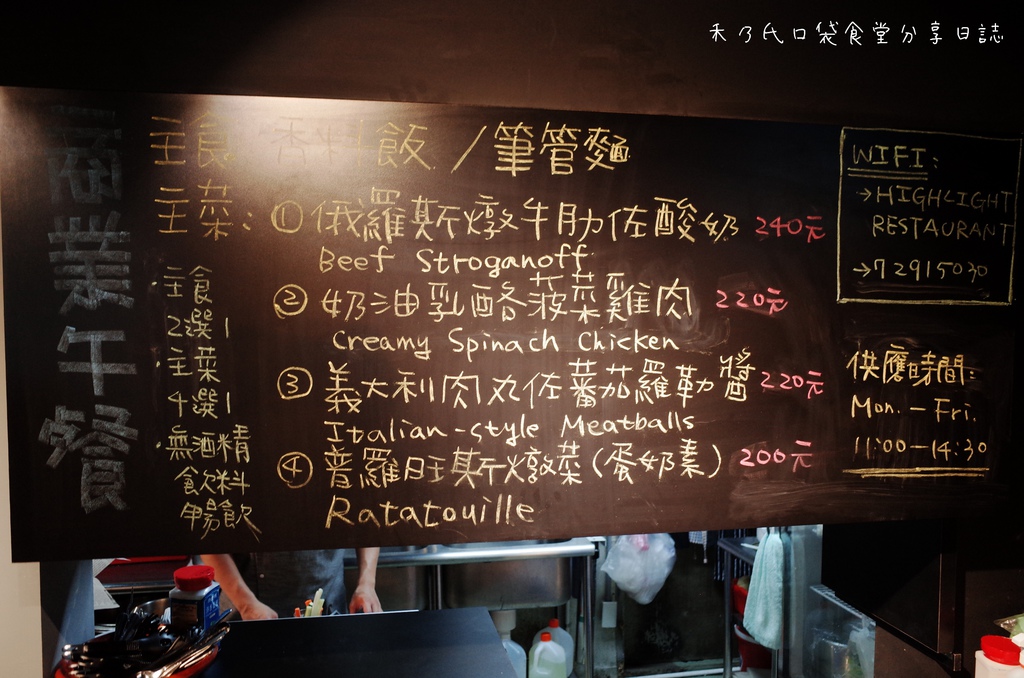 禾乃氏口袋食堂分享日誌
商業午餐
主食 香料飯 / 筆管麵
主菜: ① 俄羅斯燉牛肋佐酸奶 240元
Beef Stroganoff
② 奶油乳酪菠菜雞肉 220元
Creamy Spinach Chicken
③ 義大利肉丸佐蕃茄羅勒醬 220元
Italian-style Meatballs
④ 普羅旺斯燉菜(蛋奶素) 200元
Ratatouille
·主食
2選1
·主菜
4選1
·無酒精
飲料
暢飲
WIFI:
→HIGHLIGHT
RESTAURANT
→72915030
供應時間:
Mon.-Fri.
11:00-14:30